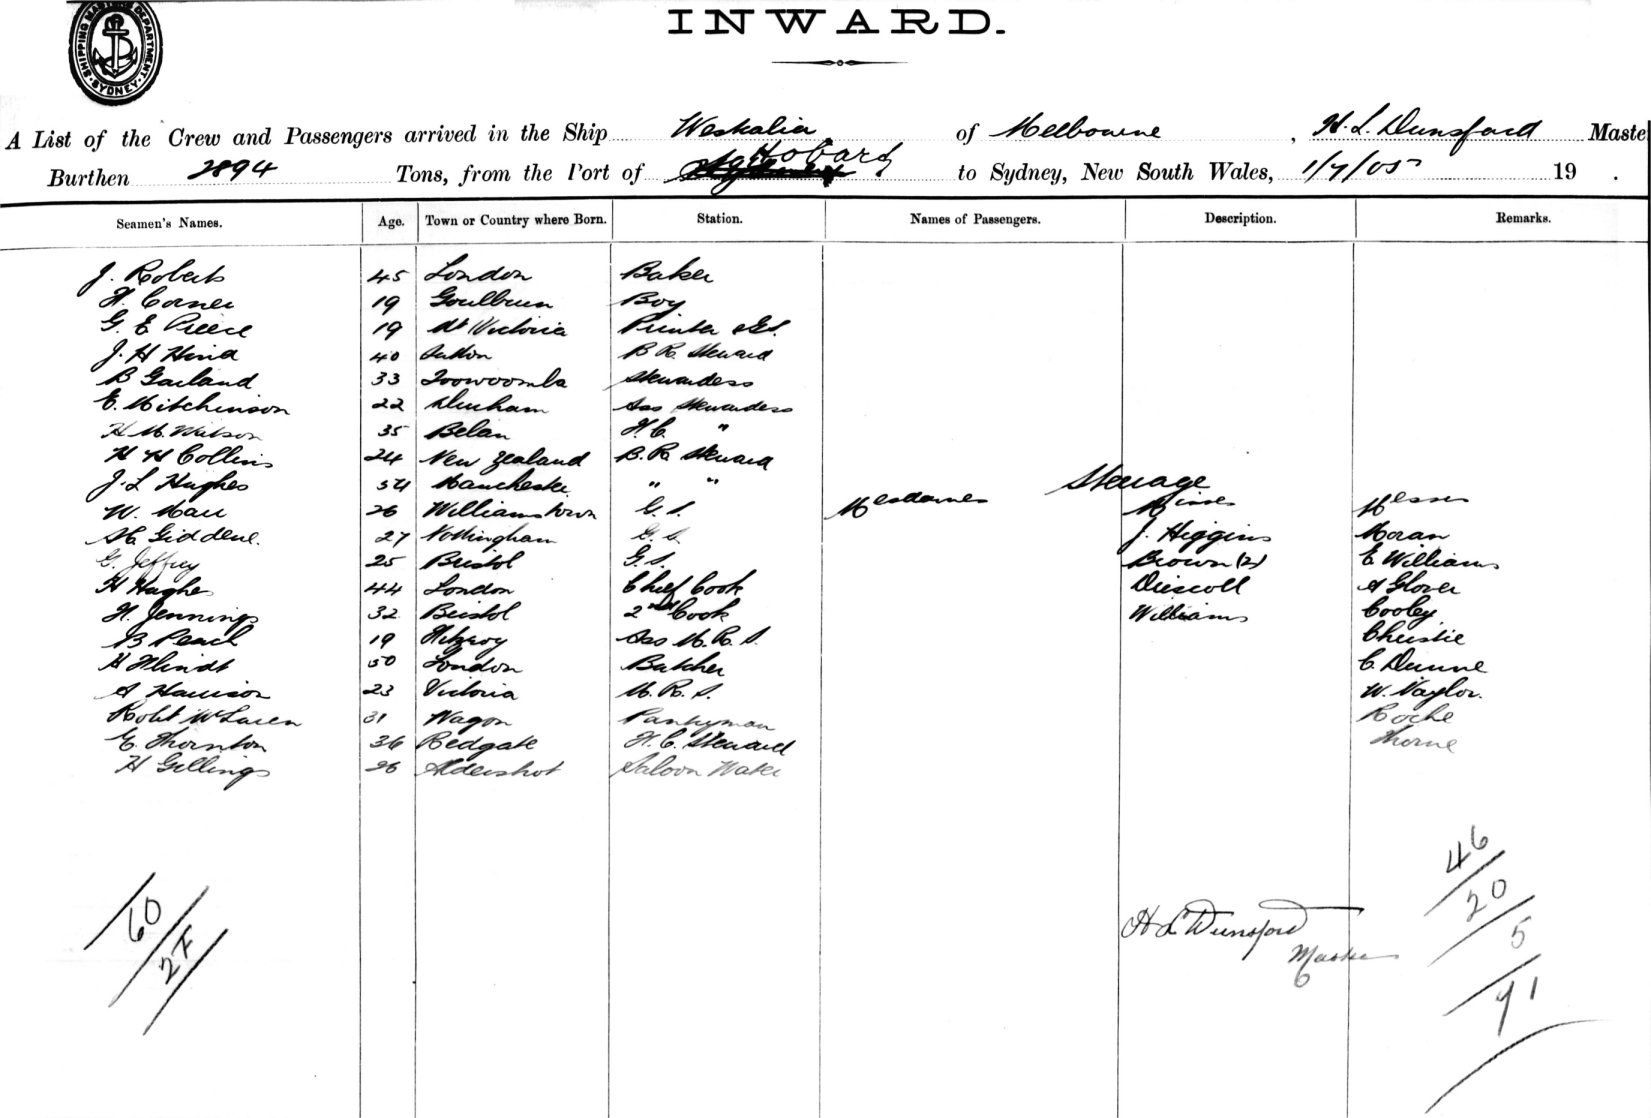 SHIPPING MASTERS DEPARTMENT SYDNEY
INWARD.
A List of the Crew and Passengers arrived in the Ship Westralia of Melbourne, H. L. Dunsford Maste
Burthen 2894 Tons, from the Port of Hobart to Sydney, New South Wales, 1/7/05 19 .
Seamen's Names. Age. Town or Country where Born. Station. Names of Passengers. Description. Remarks.
J. Roberts 45 London Baker
H. Corner 19 Goulburn Boy
G. E Pierce 19 Mt Victoria Printer &GS.
J. H Hind 40 Sutton B. R. Steward
B Garland 33 Toowoomba Stewardess
E. Mitchinson 22 Durham Ass Stewardess
H M. Watson 35 F. C. "
H H Collins 24 New Zealand B. R. Steward
J. L Hughes 54 Manchester " "
Steerage
W. Marr 26 Williamstown G. S. Mesdames Misses Messrs
Giddens. 27 Nottingham G. S. J. Higgins Moran
G. Jeffrey 25 Bristol G. S. Brown (2) E Williams
H Hughes 44 London Chief Cook Driscoll A Glover
H. Jennings 32 Bristol 2nd Cook Williams Cooley
B Pearl 19 Fitzroy Ass M. R. S. Christie
H Flindt 50 London Butcher C. Dunne
A Harrison 23 Victoria M. R. S. W. Naylor.
Robt McLaren 31 Pantryman Roche
E. Thornton 36 Redgate F. C. Steward Thorne
H Gillings 26 Aldershot Saloon Waiter
60/27
46/20/5/71
H L Dunsford
Master